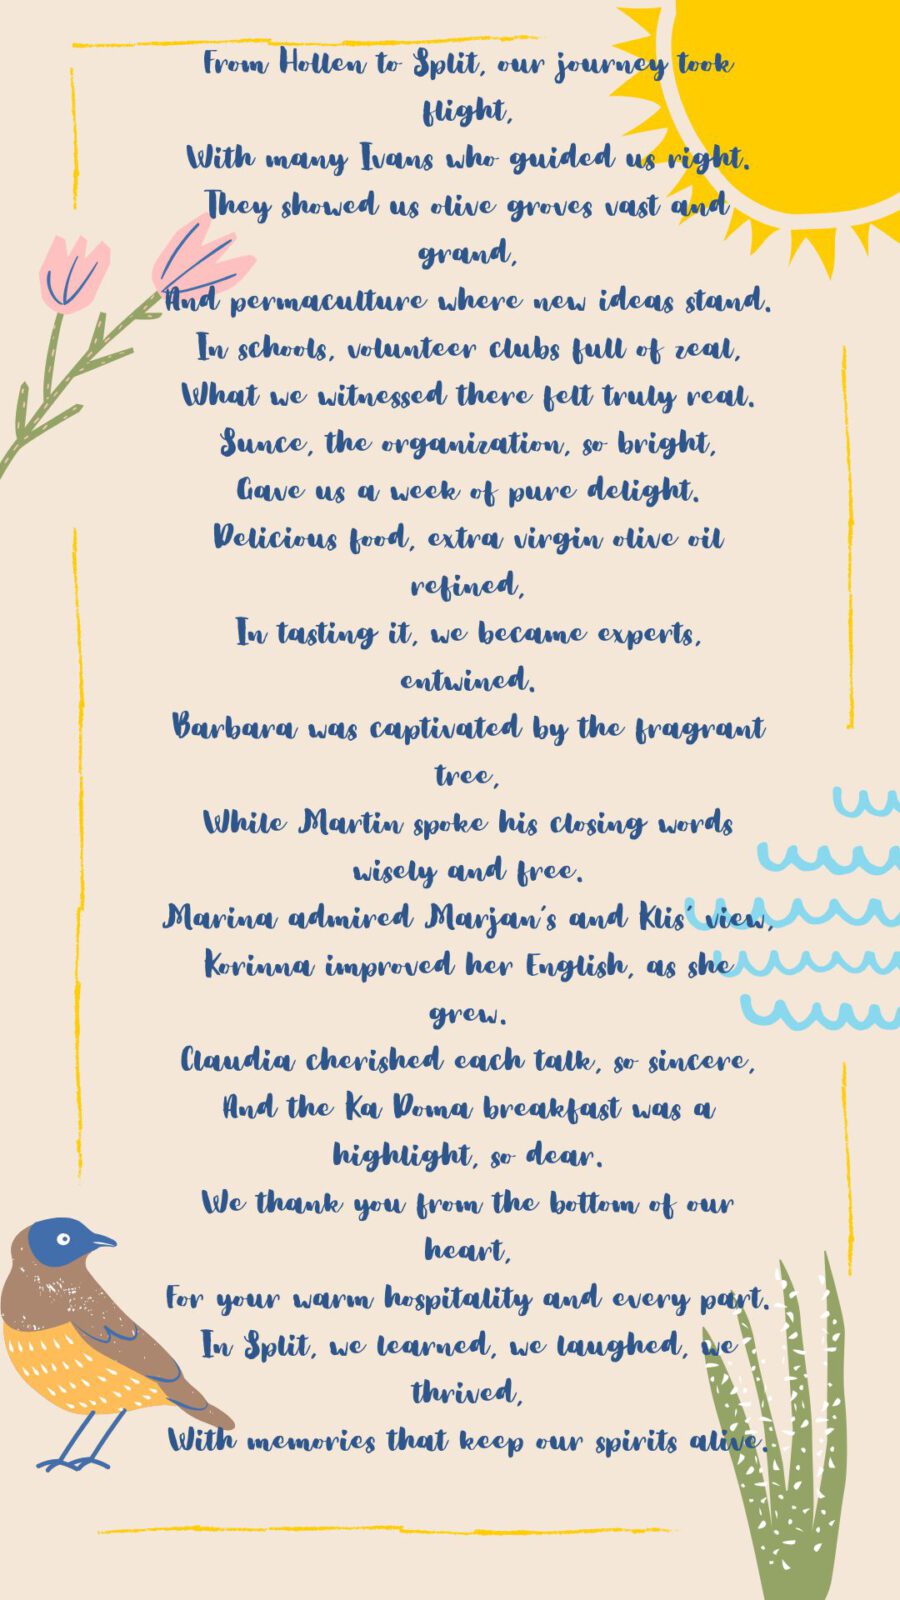 From Hollen to Split, our journey took
flight,
With many Ivans who guided us right.
They showed us olive groves vast and
grand,
And permaculture where new ideas stand.
In schools, volunteer clubs full of zeal,
What we witnessed there felt truly real.
Sunce, the organization, so bright,
Gave us a week of pure delight.
Delicious food, extra virgin olive oil
refined,
In tasting it, we became experts,
entwined.
Barbara was captivated by the fragrant
tree,
While Martin spoke his closing words
wisely and free.
Marina admired Marjan's and Klis' view,
Korinna improved her English, as she
grew.
Claudia cherished each talk, so sincere,
And the Ka Doma breakfast was a
highlight, so dear.
We thank you from the bottom of our
heart,
For your warm hospitality and every part.
In Split, we learned, we laughed, we
thrived,
With memories that keep our spirits alive.